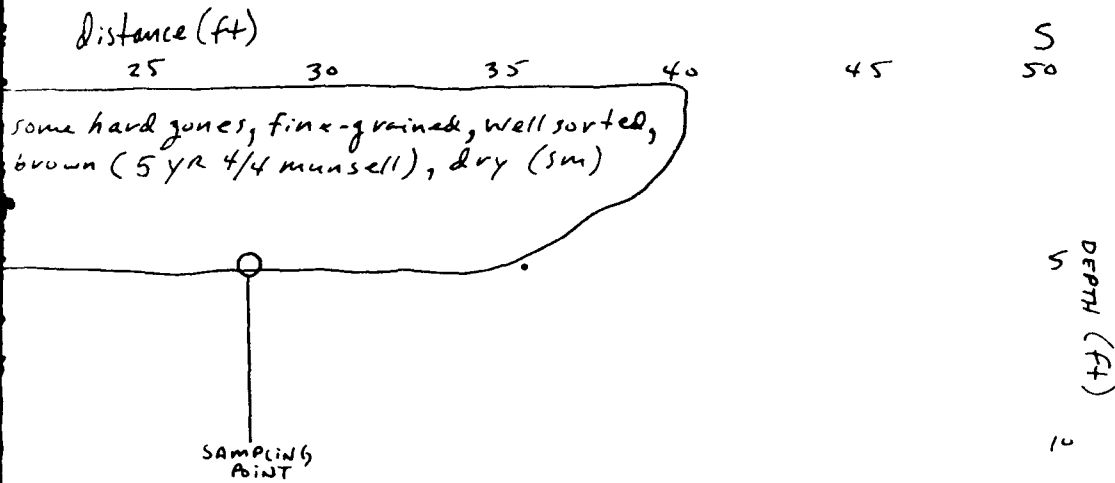 distance (ft)
S
25 30 35 40 45 50
some hard zones, fine-grained, well sorted,
brown (5 YR 4/4 munsell), dry (sm)
5
DEPTH (ft)
10
SAMPLING
POINT